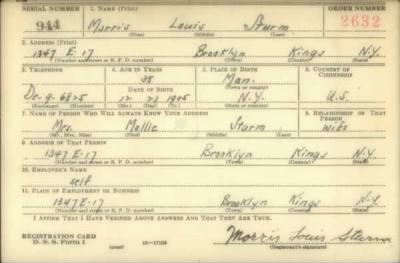 SERIAL NUMBER 1. NAME (Print) ORDER NUMBER
944 Morris Louis Sturm 2632
(First) (Middle) (Last)
2. ADDRESS (Print)
1347 E-17 Brooklyn Kings N.Y.
(Number and street or R. F. D. number) (Town) (County) (State)
3. TELEPHONE 4. AGE IN YEARS 5. PLACE OF BIRTH 6. COUNTRY OF CITIZENSHIP
35 Man.
(Town or county)
De-9-6825 DATE OF BIRTH
12 23 1905 N.Y. U.S.
(Exchange) (Number) (Mo.) (Day) (Yr.) (State or country)
7. NAME OF PERSON WHO WILL ALWAYS KNOW YOUR ADDRESS 8. RELATIONSHIP OF THAT PERSON
Mrs. Mollie Sturm wife
(Mr., Mrs., Miss) (First) (Middle) (Last)
9. ADDRESS OF THAT PERSON
1347 E-17 Brooklyn Kings N.Y.
(Number and street or R. F. D. number) (Town) (County) (State)
10. EMPLOYER'S NAME
self
11. PLACE OF EMPLOYMENT OR BUSINESS
1347 E-17 Brooklyn Kings N.Y.
(Number and street or R. F. D. number) (Town) (County) (State)
I AFFIRM THAT I HAVE VERIFIED ABOVE ANSWERS AND THAT THEY ARE TRUE.
REGISTRATION CARD
D. S. S. Form 1 (over) Morris Louis Sturm
(Registrant's signature)